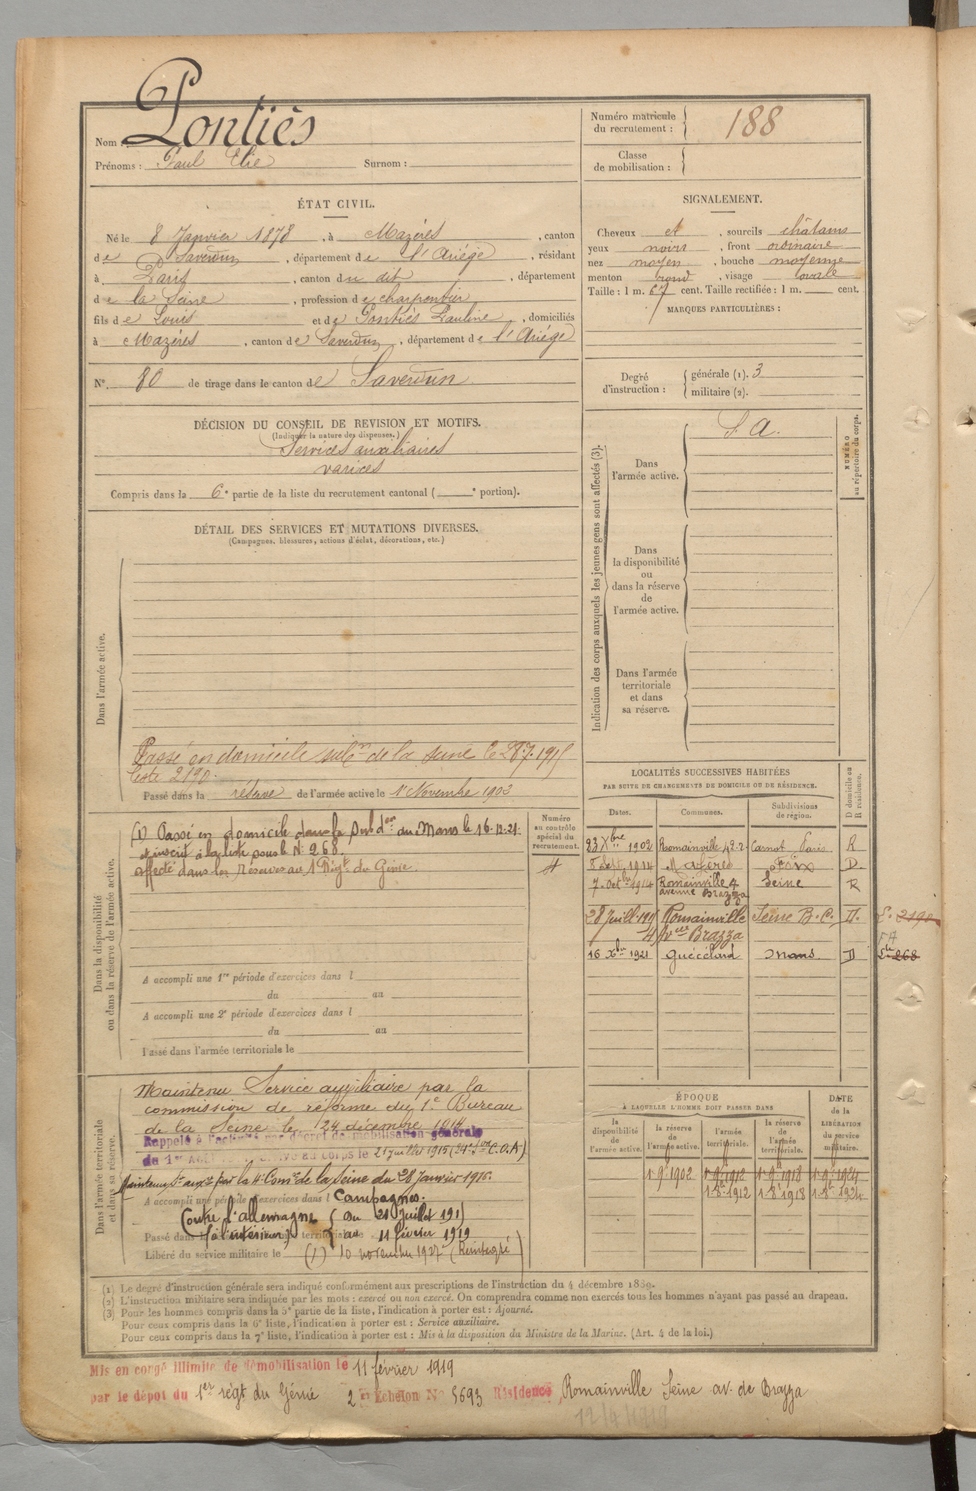 Nom : Pontiès
Prénoms : Paul Elie Surnom :
Numéro matricule du recrutement : 188
Classe de mobilisation :
ÉTAT CIVIL.
Né le 8 Janvier 1878, à Mazères, canton
de Saverdun, département de l'Ariége, résidant
à Paris, canton du dit, département
de la Seine, profession de charpentier
fils de Louis et de Pontiès Pauline, domiciliés
à Mazères, canton de Saverdun, département de l'Ariége
N°. 80 de tirage dans le canton de Saverdun
SIGNALEMENT.
Cheveux et, sourcils châtains
yeux noirs, front ordinaire
nez moyen, bouche moyenne
menton rond, visage ovale
Taille : 1 m. 67 cent. Taille rectifiée : 1 m. cent.
MARQUES PARTICULIÈRES :
Degré d'instruction : générale (1). 3
militaire (2).
DÉCISION DU CONSEIL DE REVISION ET MOTIFS.
(Indiquer la nature des dispenses.)
Services auxiliaires
varices
Compris dans la 6e partie de la liste du recrutement cantonal ( e portion).
DÉTAIL DES SERVICES ET MUTATIONS DIVERSES.
(Campagnes, blessures, actions d'éclat, décorations, etc.)
Dans l'armée active.
Passé en domicile subon de la Seine le 28.7.1915
Liste 2190.
Passé dans la réserve de l'armée active le 1er Novembre 1902
Indication des corps auxquels les jeunes gens sont affectés (3).
Dans l'armée active. S. A.
Dans la disponibilité ou dans la réserve de l'armée active.
Dans l'armée territoriale et dans sa réserve.
NUMÉRO au répertoire du corps.
Dans la disponibilité ou dans la réserve de l'armée active.
(1) Passé en domicile dans la Subdon du Mans le 16.12.21.
et inscrit à la liste sous le N° 268.
affecté dans les Réserves au 1er Régt du Génie.
Numéro au contrôle spécial du recrutement.
A accompli une 1re période d'exercices dans l
du au
A accompli une 2e période d'exercices dans l
du au
Passé dans l'armée territoriale le
LOCALITÉS SUCCESSIVES HABITÉES
PAR SUITE DE CHANGEMENTS DE DOMICILE OU DE RÉSIDENCE.
D domicile ou R résidence.
Dates. Communes. Subdivisions de région.
23 Xbre 1902 Romainville Paris R
1914 Mazères Foix D.
7. Octbre 1914 Romainville 4 avenue Brazza Seine R
28 Juill. 1915 Romainville Seine B.C. D. L. 2190
4 Brazza
16 Xbre 1921 Guécélard Mans D 268
Dans l'armée territoriale et dans sa réserve.
Maintenu Service auxiliaire par la
commission de réforme du 1er Bureau
de la Seine le 24 décembre 1914
Rappelé à l'activité par décret de mobilisation générale
du 1er Arrivé au corps le 21 juillet 1915 (24e Son C.O.A)
Maintenu S. auxre par la 4e Comon de la Seine du 28 Janvier 1916.
A accompli une période d'exercices dans l Campagnes.
Contre l'allemagne Du 21 Juillet 191
Passé dans (à l'intérieur) territoriale au 11 février 1919
Libéré du service militaire le (1) 10 novembre 1927 (Réintégré)
ÉPOQUE
À LAQUELLE L'HOMME DOIT PASSER DANS
la disponibilité de l'armée active.
la réserve de l'armée active.
l'armée territoriale.
la réserve de l'armée territoriale.
DATE de la LIBÉRATION du service militaire.
1-9-1902 1-9-1912 1-9-1918 1-9-1924
1-8-1912 1-8-1918 1-8-1924
(1) Le degré d'instruction générale sera indiqué conformément aux prescriptions de l'instruction du 4 décembre 1889.
(2) L'instruction militaire sera indiquée par les mots : exercé ou non exercé. On comprendra comme non exercés tous les hommes n'ayant pas passé au drapeau.
(3) Pour les hommes compris dans la 5e partie de la liste, l'indication à porter est : Ajourné.
Pour ceux compris dans la 6e liste, l'indication à porter est : Service auxiliaire.
Pour ceux compris dans la 7e liste, l'indication à porter est : Mis à la disposition du Ministre de la Marine. (Art. 4 de la loi.)
Mis en congé illimité de démobilisation le 11 février 1919
par le dépôt du 1er régt du Génie 2e Echelon No 5693 Résidence Romainville Seine av. de Brazza